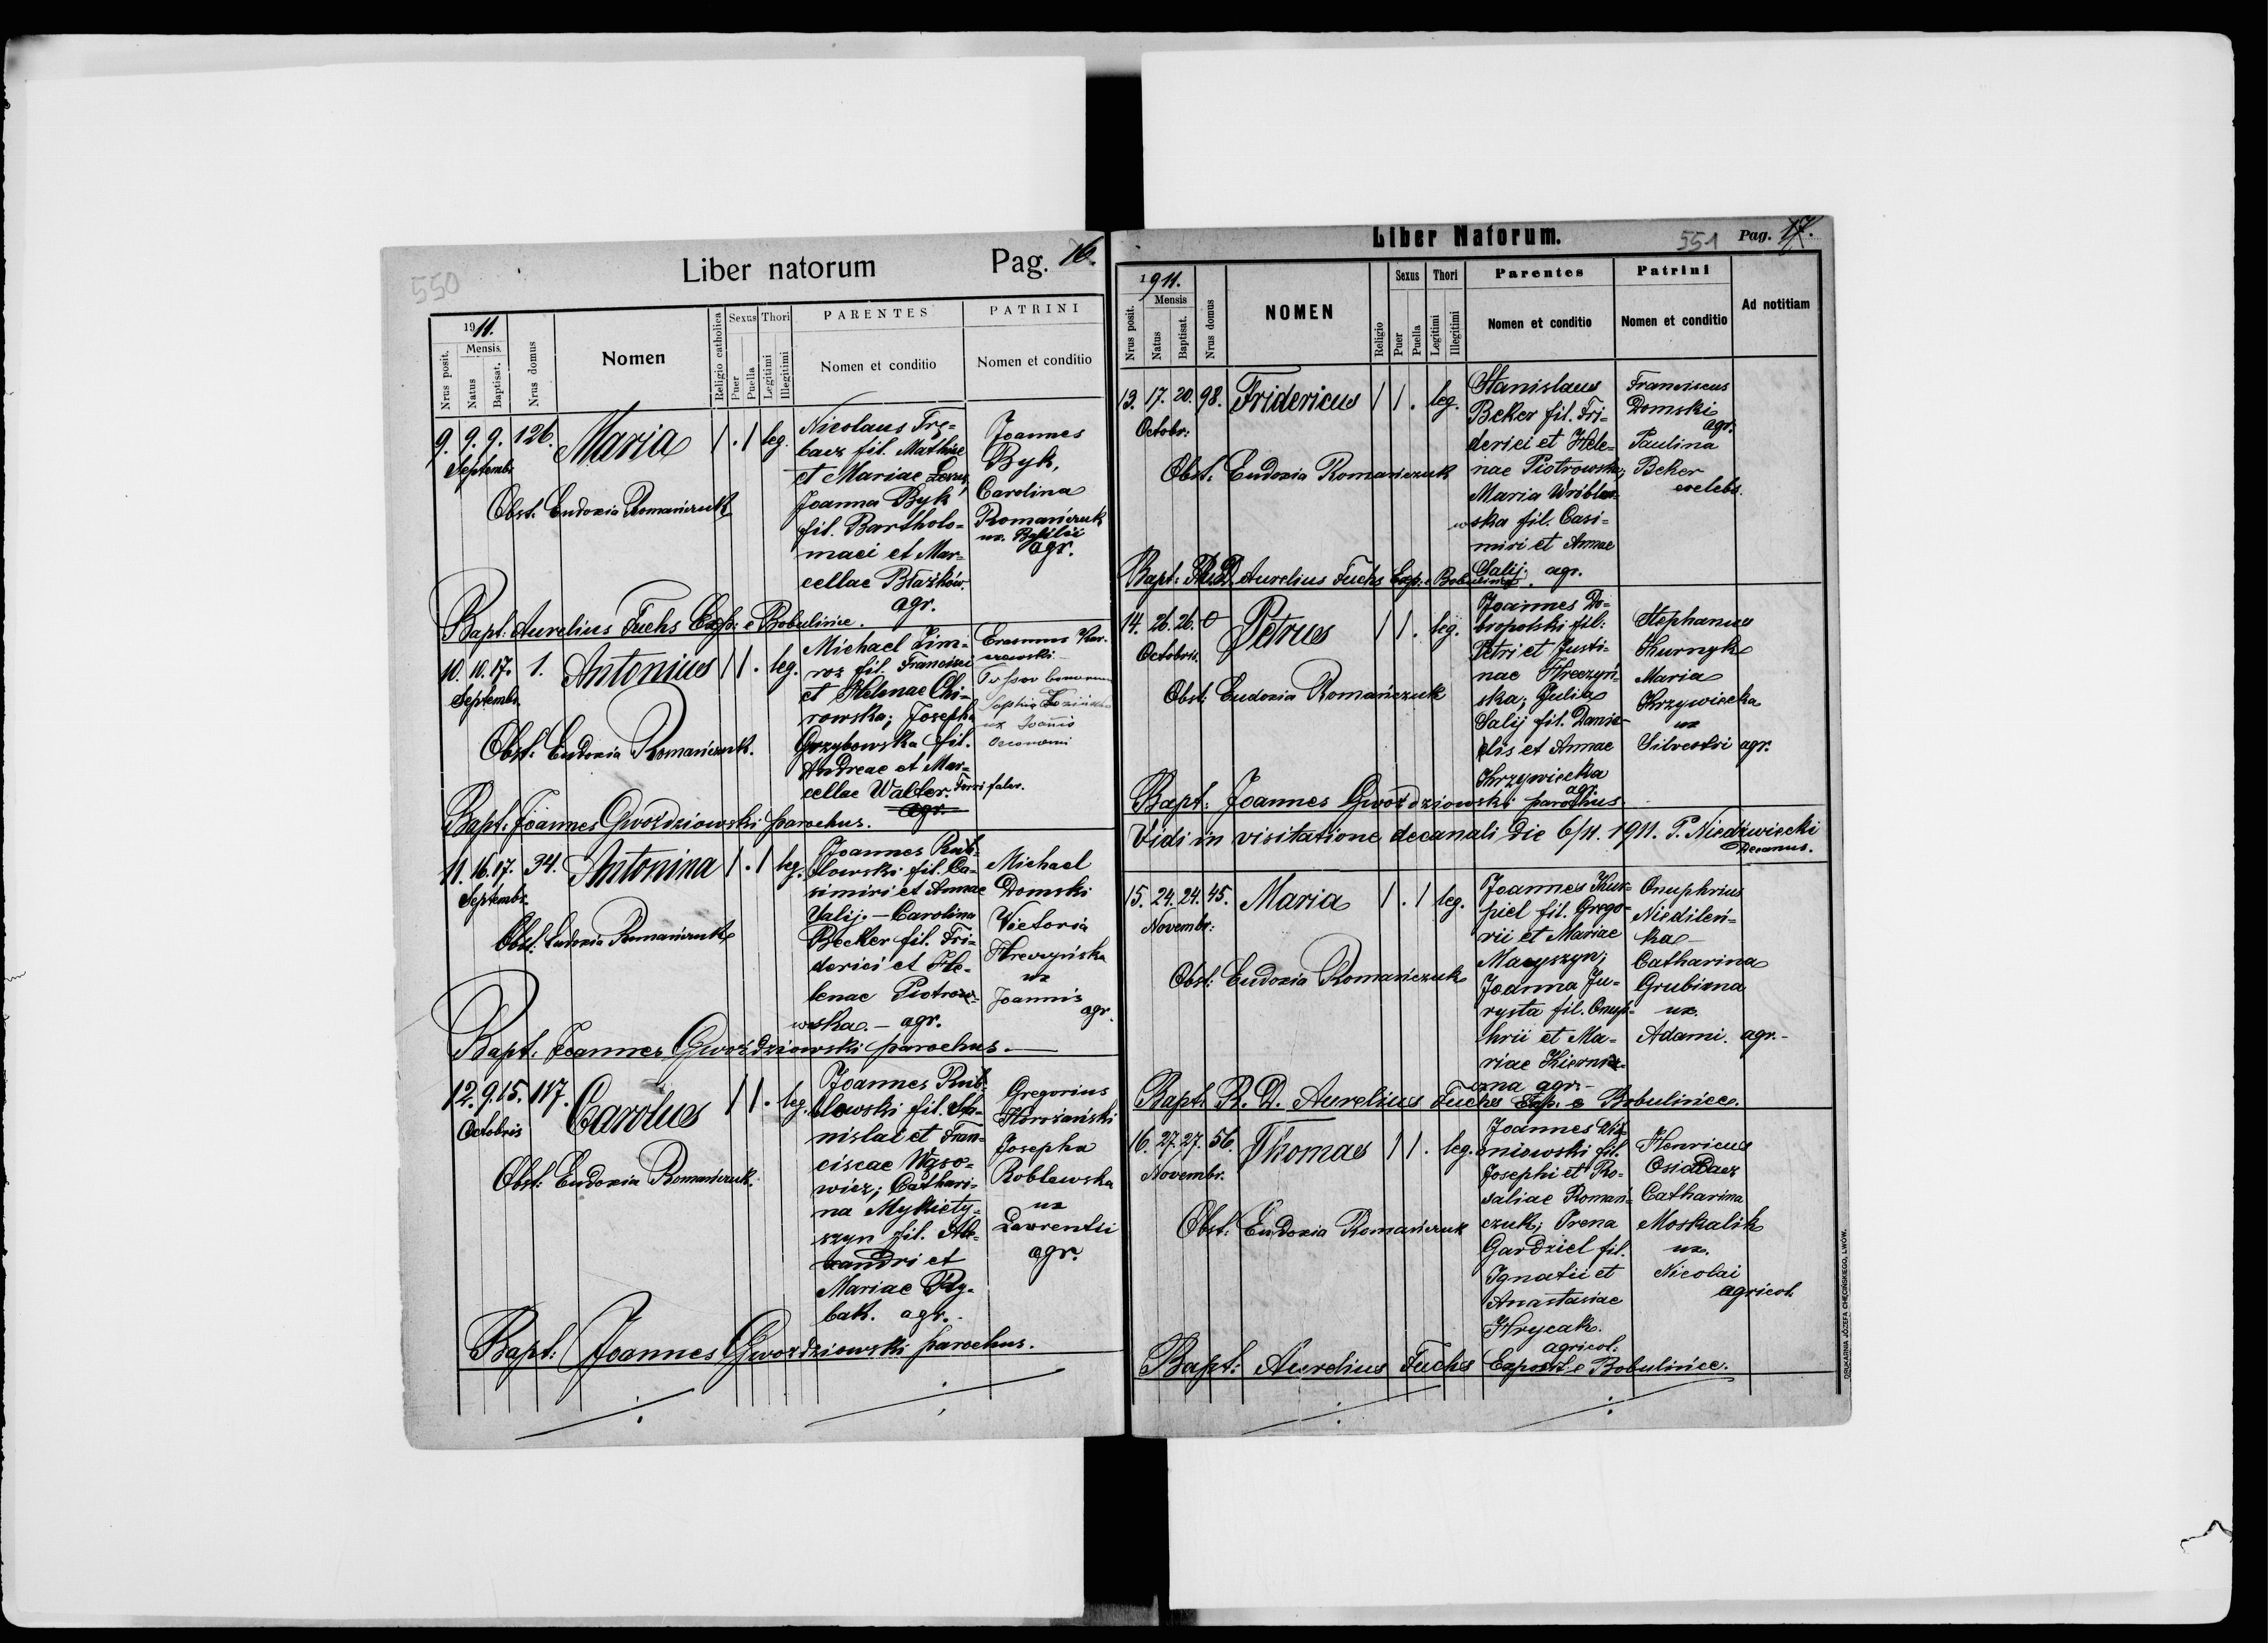 550
Liber natorum Pag. 16.
1911.
Nrus posit.
Mensis.
Natus
Baptisat.
Nrus domus
Nomen
Religio catholica
Sexus
Puer
Puella
Thori
Legitimi
Illegitimi
PARENTES
Nomen et conditio
PATRINI
Nomen et conditio
9. 9. 9. 126. Maria 1 . 1 leg.
Septembr.
Obst. Eudoxia Romańczuk
Nicolaus Trę-
bacz fil. Mathiae
et Mariae
Joanna Byk
fil. Bartholo-
maei et Mar-
cellae Błażków.
agr.
Joannes
Byk,
Carolina
Romańczuk
ux. Basilii
agr.
Bapt. Aurelius Fuchs Exp. e Bobulińce.
10. 10. 17. 1. Antonius 1 1 . leg.
Septembr.
Obst. Eudoxia Romańczuk.
Michael Zim-
roz fil. Francisci
et Helenae Chi-
rowska; Josepha
Grzybowska fil.
Andreae et Mar-
cellae Walter. Ferri faber.
agr.
Erasmus Kar-
czewski
Sophia
ux Joannis
Oeconomi
Bapt. Joannes Gwoździowski parochus.
11. 16. 17. 34. Antonina 1 . 1 leg.
Septembr.
Obst. Eudoxia Romańczuk
Joannes Rub-
lowski fil. Ca-
simiri et Annae
Salij. - Carolina
Becker fil. Fri-
derici et He-
lenae Piotrow-
wska. - agr.
Michael
Domski
Victoria
Hreczyńska
ux
Joannis
agr.
Bapt. Joannes Gwoździowski parochus.
12. 9. 15. 117. Carolus 1 1 . leg.
Octobris
Obst: Eudoxia Romańczuk.
Joannes Rub-
lowski fil. Sta-
nislai et Fran-
ciscae Wąso-
wicz; Cathari-
na Mykiety-
szyn fil. Ale-
xandri et
Mariae Ry-
bak. agr.
Gregorius
Korożański
Josepha
Roblewska
ux
Lawrentii
agr.
Bapt: Joannes Gwoździowski parochus.
Liber Natorum. 551 Pag. 17.
1911.
Nrus posit.
Mensis
Natus
Baptisat.
Nrus domus
NOMEN
Religio
Sexus
Puer
Puella
Thori
Legitimi
Illegitimi
Parentes
Nomen et conditio
Patrini
Nomen et conditio
Ad notitiam
13. 17. 20. 98. Fridericus 1 1 . leg.
Octobr:
Obst. Eudoxia Romańczuk
Stanislaus
Beker fil. Fri-
derici et Hele-
nae Piotrowska;
Maria Wróblew-
wska fil. Casi-
miri et Annae
Salij; agr.
Franciscus
Domski
agr.
Paulina
Beker
coelebs.
Bapt: R. D. Aurelius Fuchs Exp. e Bobulince.
14. 26. 26. 0 Petrus 1 1 . leg.
Octobris.
Obst: Eudoxia Romańczuk
Joannes Do-
bropolski fil:
Petri et Justi-
nae Hreczyń-
ska; Julia
Salij fil. Danie-
lis et Annae
Krzywiecka
agr.
Stephanus
Kurnyk
Maria
Krzywiecka
ux
Silvestri agr.
Bapt: Joannes Gwoździowski parochus.
Vidi in visitatione decanali die 6/11. 1911. P. Niedźwiecki
Decanus.
15. 24. 24. 45. Maria 1 . 1 leg.
Novembr:
Obst: Eudoxia Romańczuk
Joannes Kur-
piel fil. Grego-
rii et Mariae
Macyszyn;
Joanna Ju-
rysta fil. Onup-
hrii et Ma-
riae Kierni-
czna agr. -
Onuphrius
Niedileń-
ka -
Catharina
Grubizna
ux.
Adami. agr. -
Bapt. R. D. Aurelius Fuchs Exp. e Bobulińce.
16. 27. 27. 56. Thomas 1 1 . leg.
Novembr.
Obst: Eudoxia Romańczuk
Joannes Wiś-
niowski fil.
Josephi et Ro-
saliae Romań-
czuk; Irena
Gardziel fil.
Ignatii et
Anastasiae
Hrycak.
agricol.
Henricus
Osiadacz
Catharina
Moskalik
ux.
Nicolai
agricol.
Bapt: Aurelius Fuchs Exposit. e Bobulińce.
DRUKARNIA JÓZEFA CHĘCIŃSKIEGO, LWÓW.